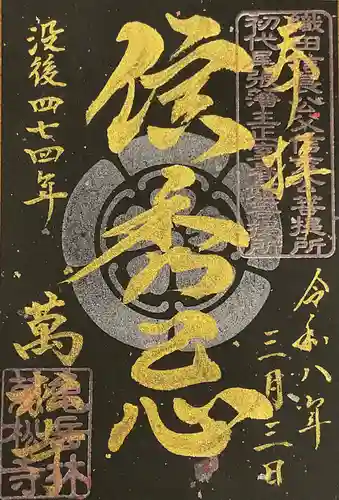 奉拝
織田信長公父信秀公菩提所
信秀忌
没後四七四年
萬松寺
亀岳林
萬松寺
令和八年
三月三日